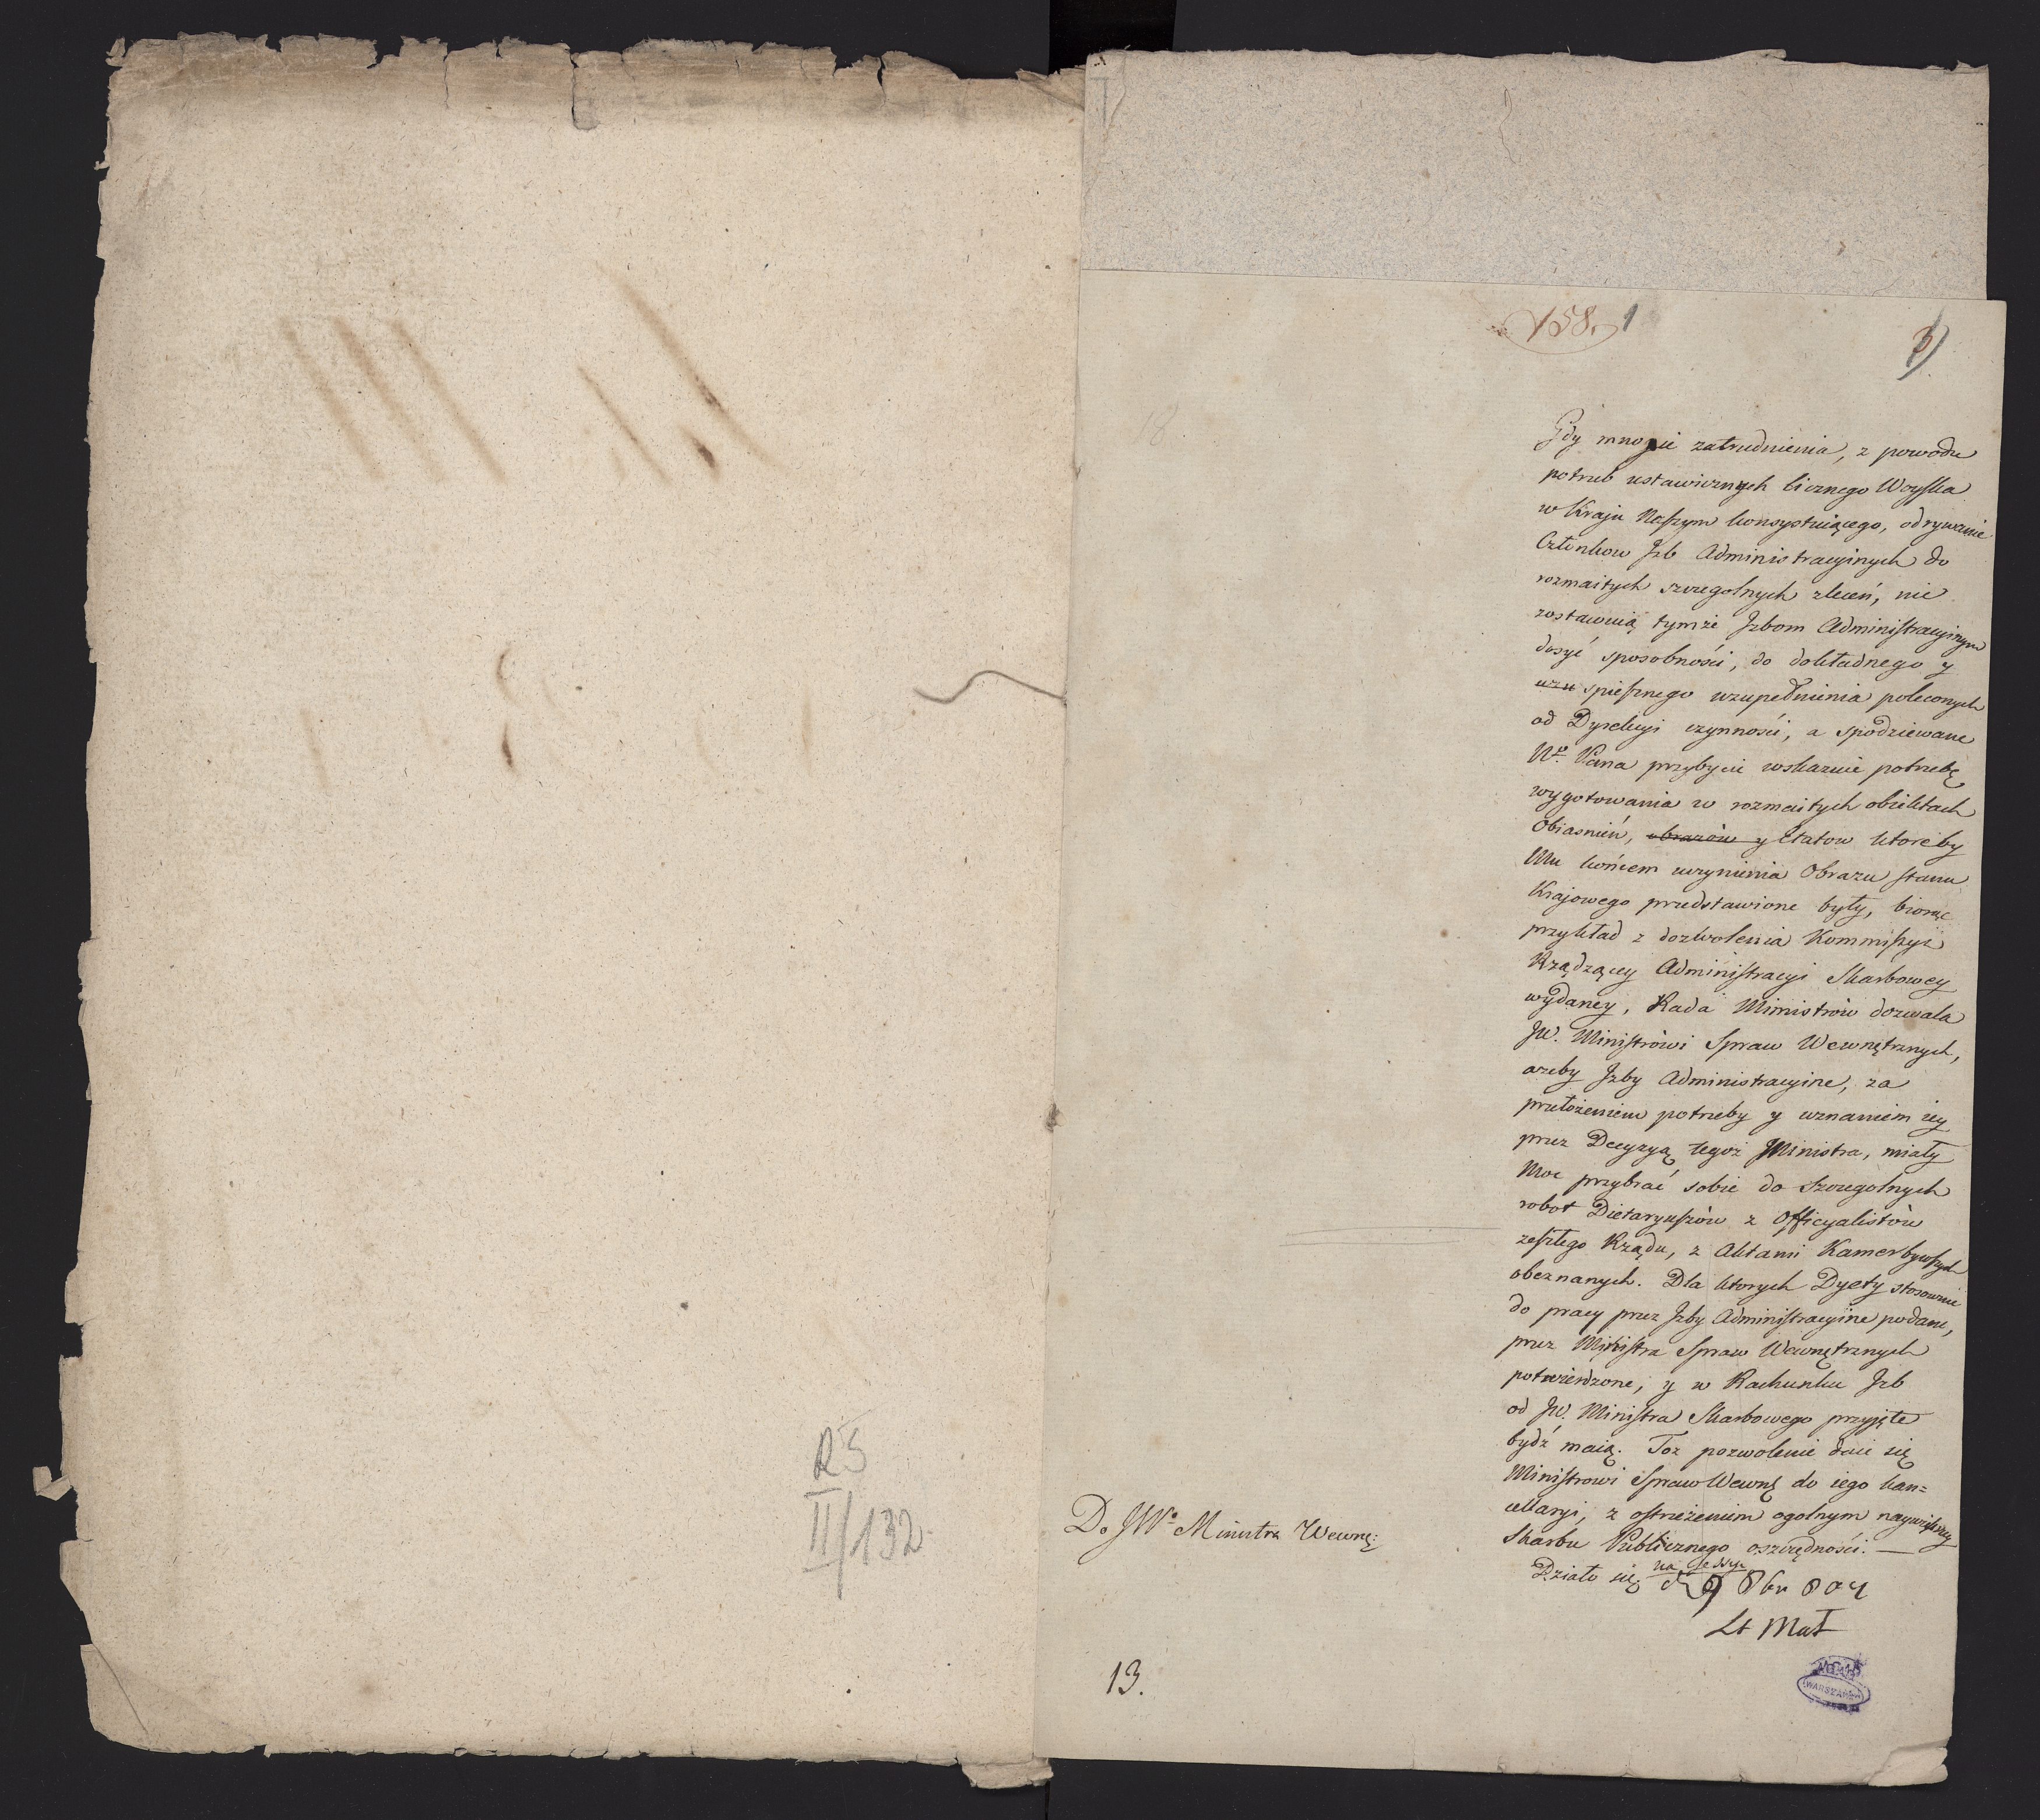 RS
II/132
158. 1
3
18
Gdy mnogie zatrudnienia, z powodu
potrzeb ustawicznych licznego Woyska
w Kraju Naszym konsystuiącego, odrywanie
Członkow Izb Administracyinych do
rozmaitych szczegolnych zleceń, nie
zostawuią tymże Izbom Administracyinym
dosyć sposobności, do dokładnego y
uzu spiesznego uzupełnienia poleconych
od Dyrekcyi czynności, a spodziewane
Nº. Pana przybycie wskazuie potrzebę
wygotowania w rozmaitych obiektach
Obiasnień, obrazów y Etatow ktoreby
Mu końcem uczynienia Obrazu stanu
Krajowego przedstawione były, biorąc
przykład z dozwolenia Kommissyi
Rządzącey Administracyi Skarbowey
wydaney, Rada Ministrów dozwala
JW. Ministrówi Spraw Wewnętrznych,
ażeby Izby Administracyine, za
przełożeniem potrzeby y uznaniem iey
przez Decyzyą tegoż Ministra, miały
Moc przybrać sobie do szczegolnych
robot Dietaryuszów z Officyalistów
zeszłego Rządu, z Aktami Kamer bywszych
obeznanych. Dla ktorych Dyety stosownie
do pracy przez Izby Administracyine podane,
przez Ministra Spraw Wewnętrznych
potwierdzone, y w Rachunku Izb
od JW. Ministra Skarbowego przyjęte
bydź maią. Toż pozwolenie daie się
Ministrowi Spraw Wewnę do iego kan=
cellaryi, z ostrzeżeniem ogolnym naywiększey
Skarbu Publicznego oszczędności. —
Działo się na Sessyi d 9 8br 807
Lt Mał
Do JWº Ministra Wewnę:
13.
AGAD
WARSZAWA